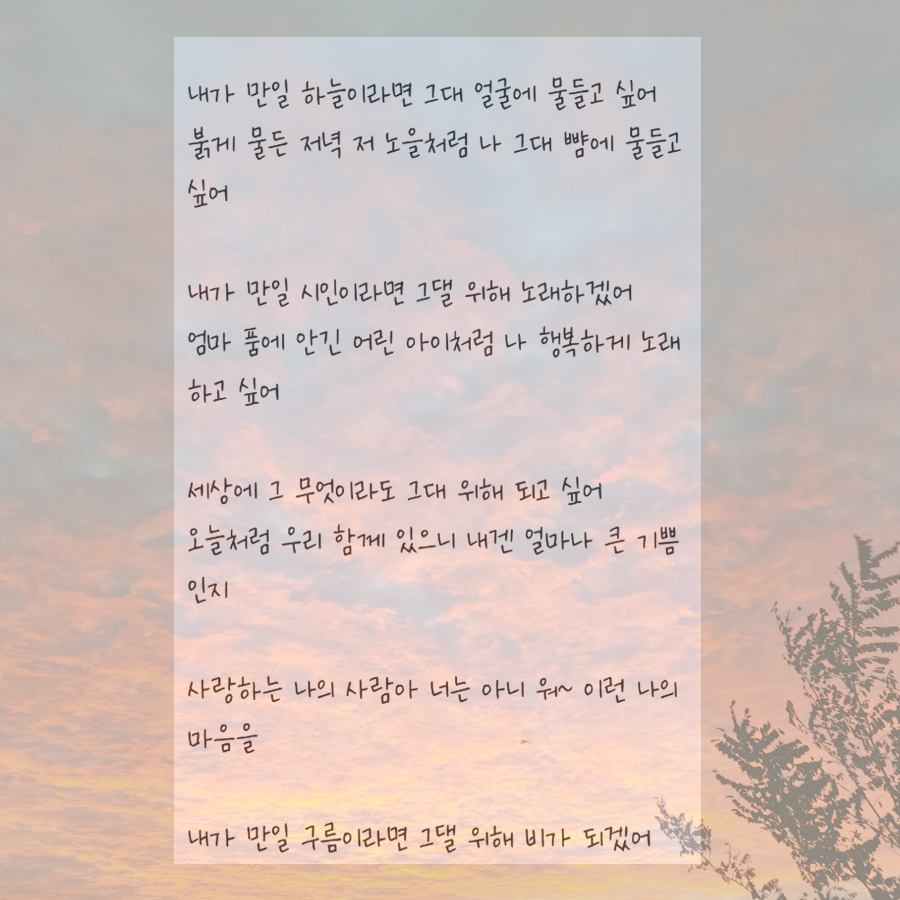 내가 만일 하늘이라면 그대 얼굴에 물들고 싶어
붉게 물든 저녁 저 노을처럼 나 그대 뺨에 물들고
싶어
내가 만일 시인이라면 그댈 위해 노래하겠어
엄마 품에 안긴 어린 아이처럼 나 행복하게 노래
하고 싶어
세상에 그 무엇이라도 그대 위해 되고 싶어
오늘처럼 우리 함께 있으니 내겐 얼마나 큰 기쁨
인지
사랑하는 나의 사람아 너는 아니 워~ 이런 나의
마음을
내가 만일 구름이라면 그댈 위해 비가 되겠어